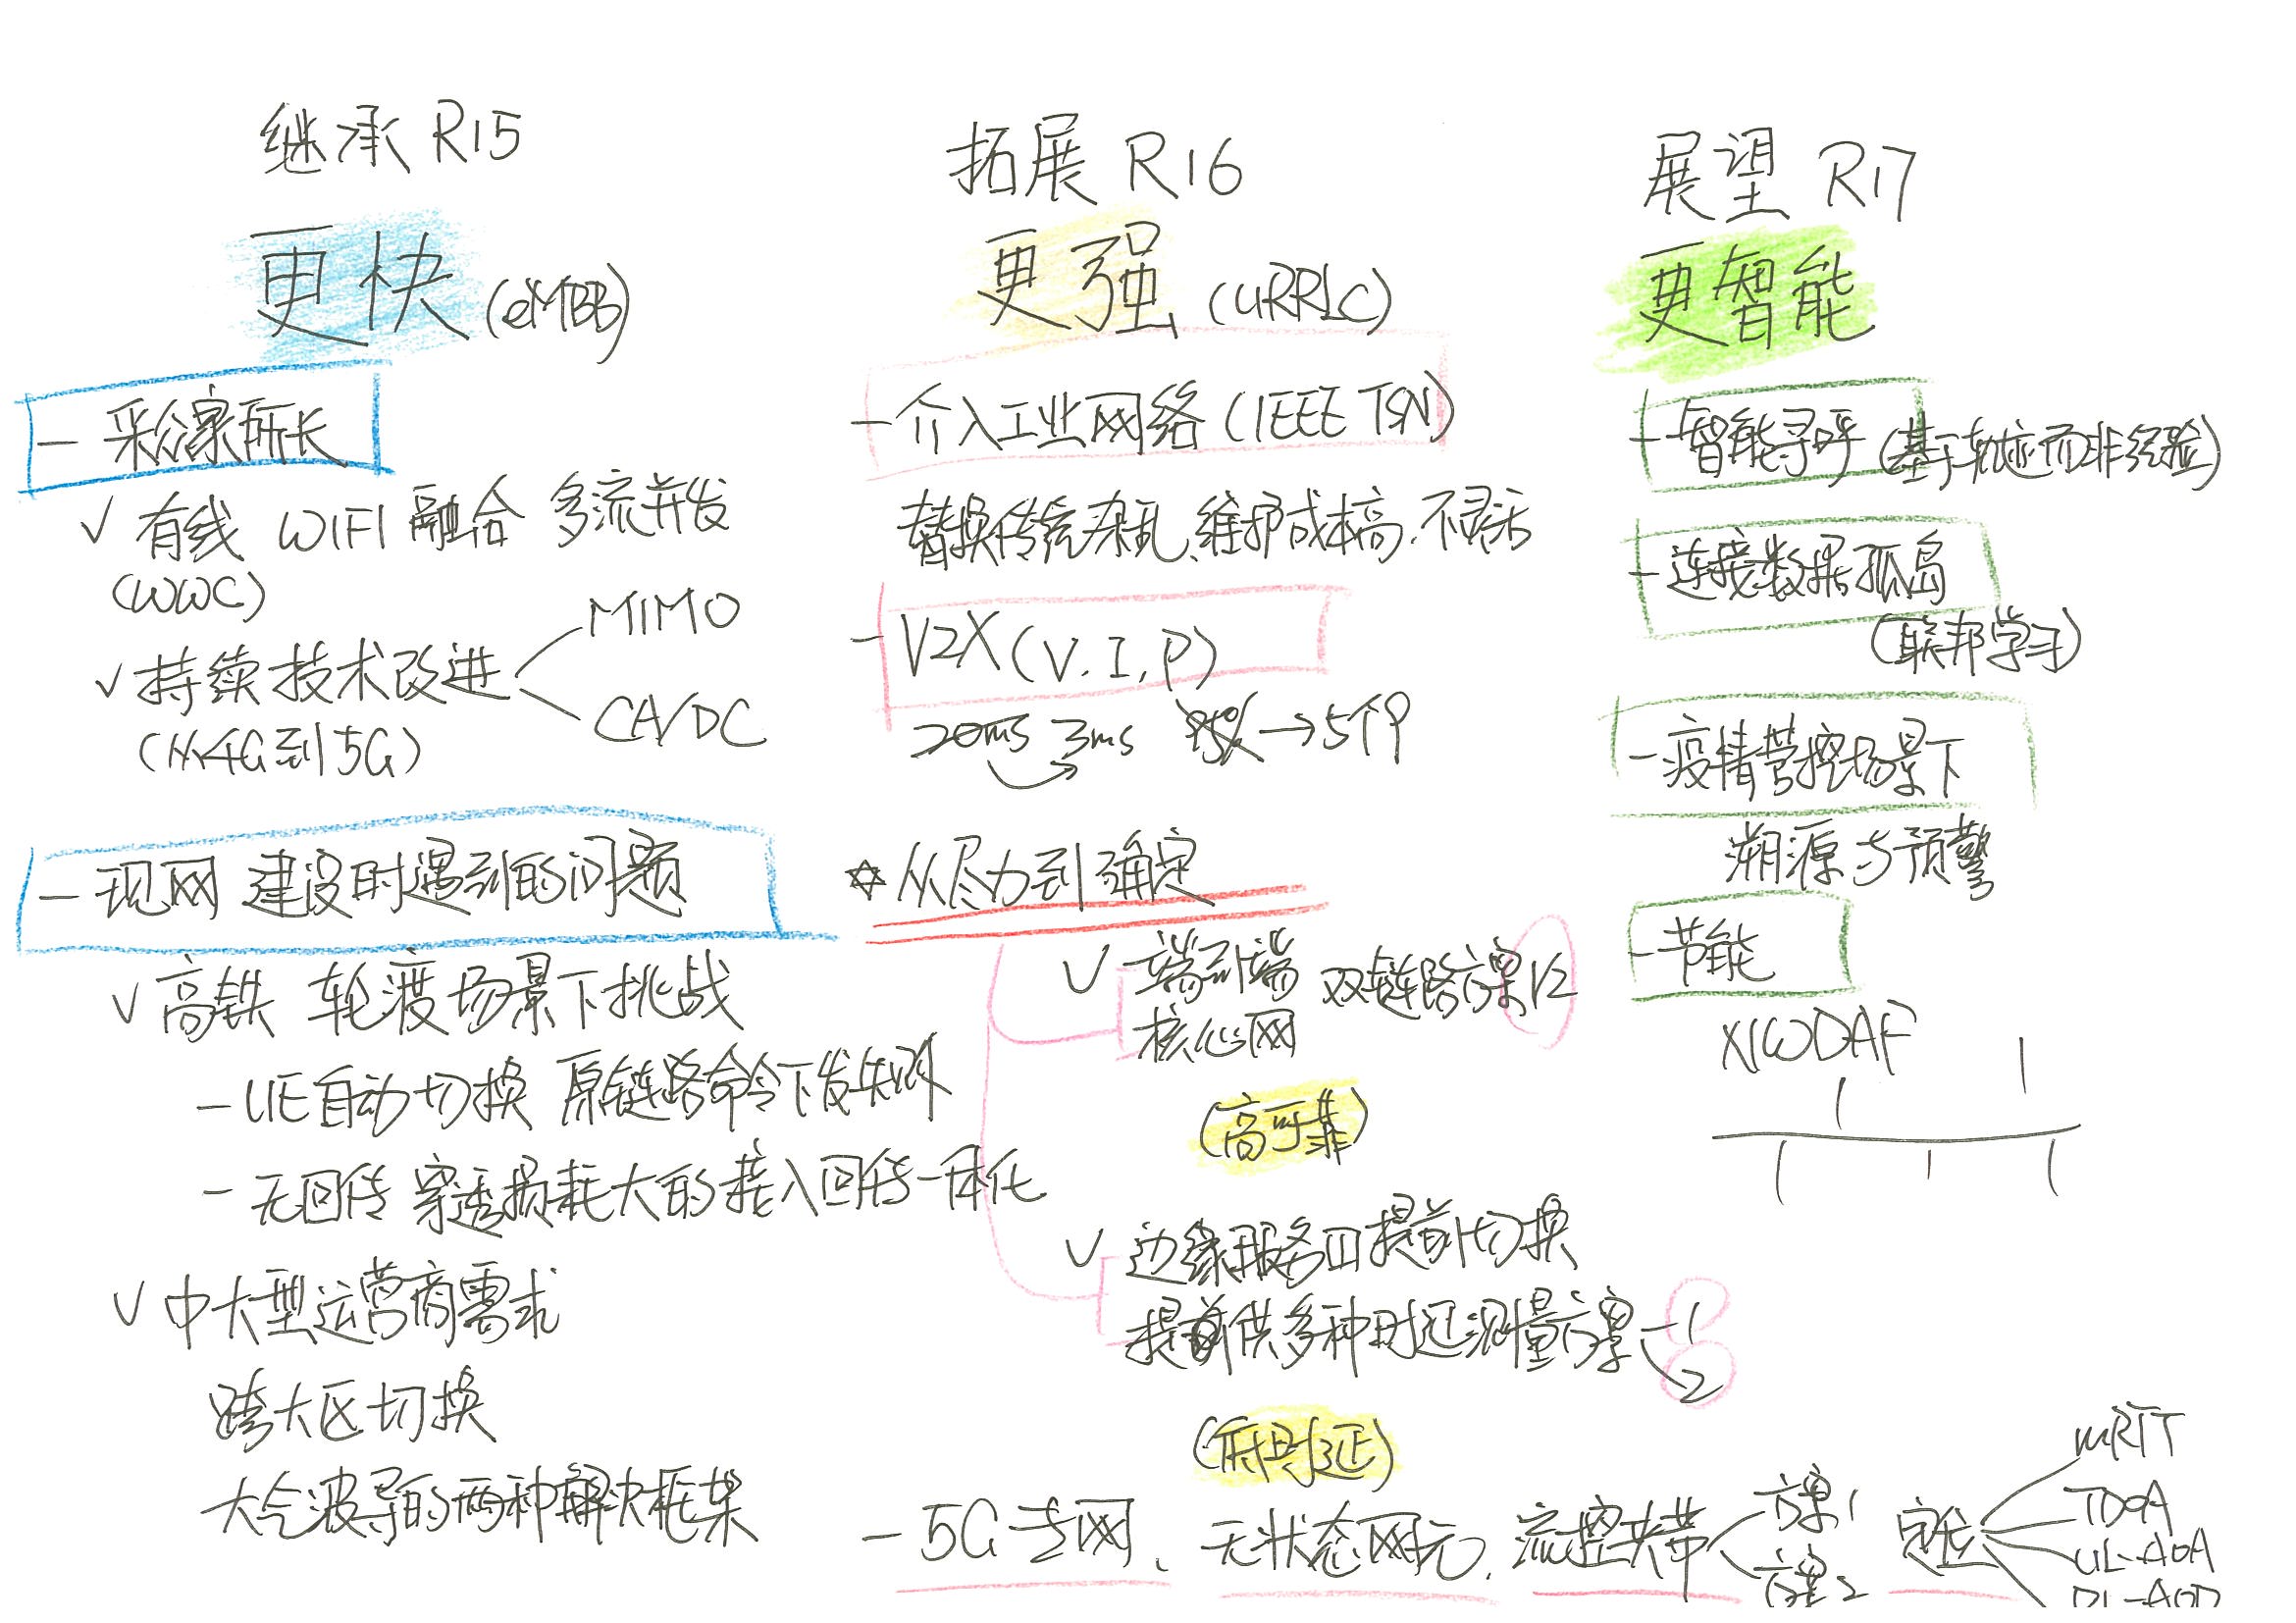 继承 R15
更快 (eMBB)
- 采众家所长
✓ 有线 WIFI 融合 多流并发
(WWC)
✓ 持续技术改进
MIMO
CA/DC
(从4G到5G)
- 现网 建设时遇到的问题
✓ 高铁 轮渡场景下挑战
- UE自动切换 原链路命令下发失败
- 无回传 穿透损耗大的接入回传一体化
✓ 中大型运营商需求
跨大区切换
大气波导的两种解决框架
拓展 R16
更强 (URRLC)
- 介入工业网络 (IEEE TSN)
替换传统杂乱、维护成本高、不灵活
- V2X (V.I.P)
20ms 3ms → 5个9
☆ 从尽力到确定
✓ 端到端
核心网
双链路方案1/2
(高可靠)
✓ 边缘服务 提前切换
供多种时延测量方案
1
2
(低时延)
- 5G专网、无状态网元、流控夹带
方案1
方案2
定位
mRTT
TDOA
UL-AOA
DL-AOD
展望 R17
更智能
- 智能寻呼 (基于轨迹而非经验)
- 连接数据孤岛
(联邦学习)
- 疫情管控场景下
溯源与预警
- 节能